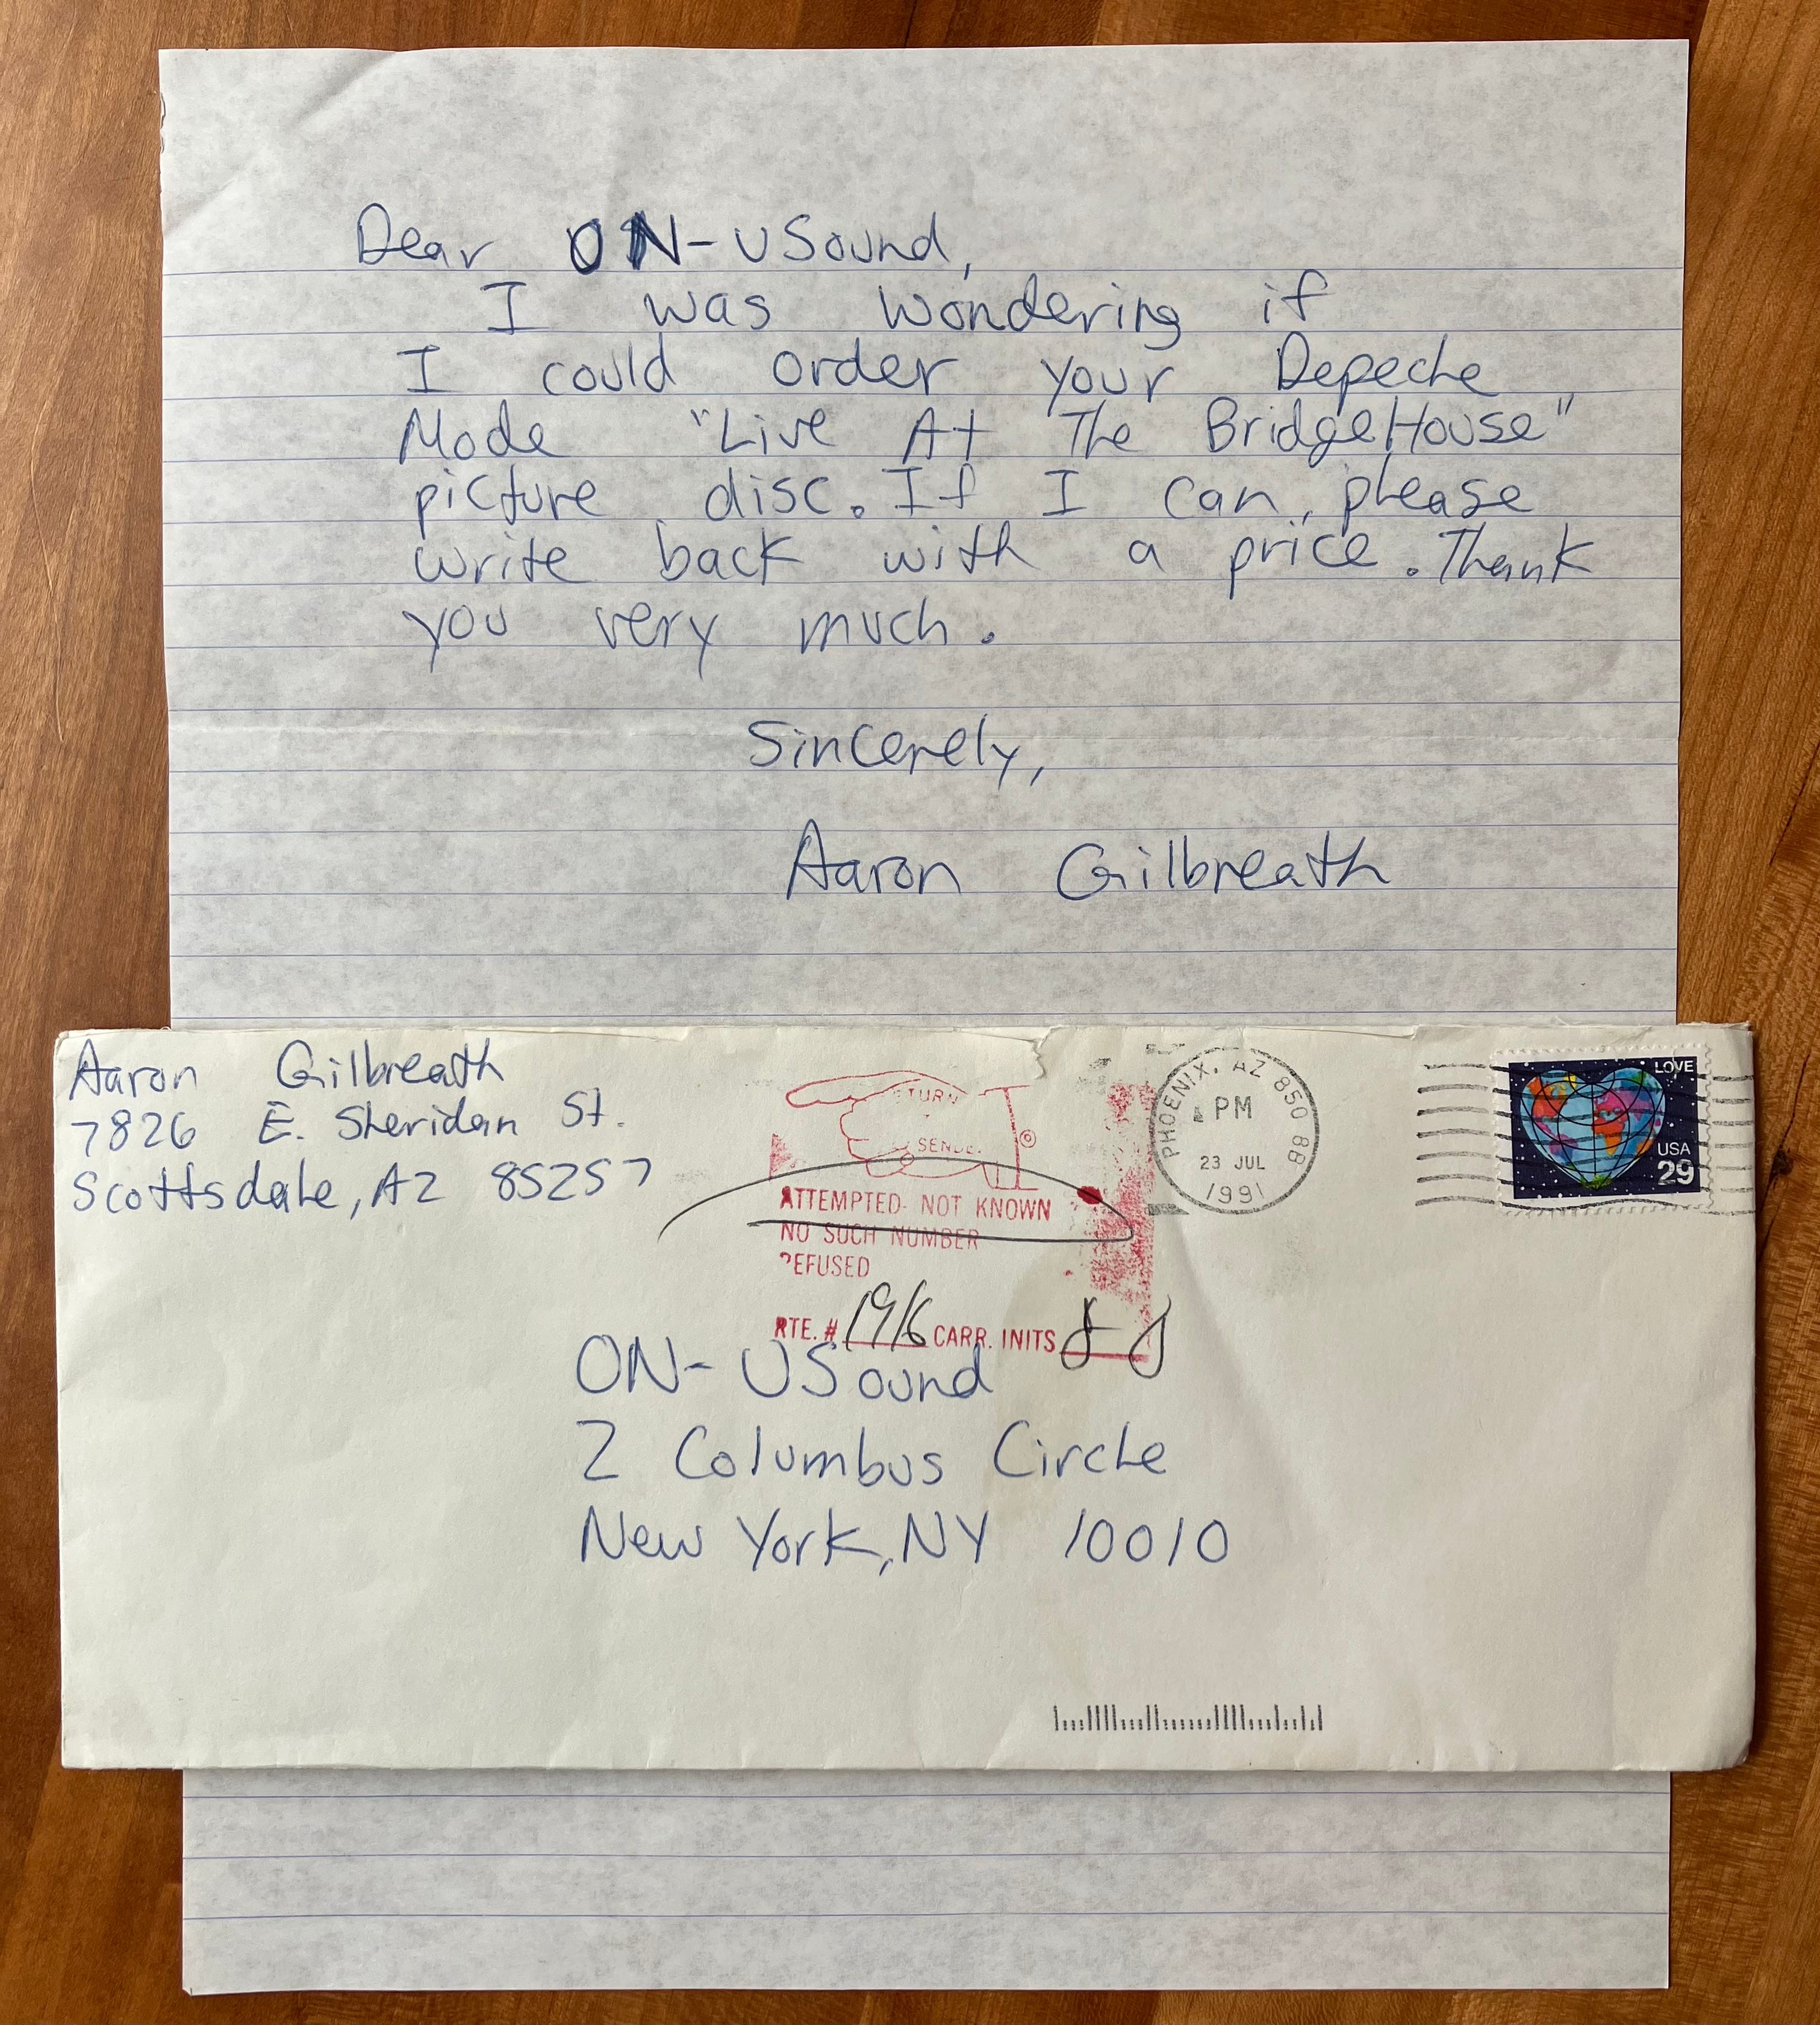 Dear ON-U Sound,
I was wondering if
I could order your Depeche
Mode "Live At The BridgeHouse"
picture disc. If I can, please
write back with a price. Thank
you very much.
Sincerely,
Aaron Gilbreath
Aaron Gilbreath
7826 E. Sheridan St.
Scottsdale, AZ 85257
ATTEMPTED - NOT KNOWN
NO SUCH NUMBER
REFUSED
RTE. # 1916 CARR. INITS
PHOENIX, AZ 850 BB
PM
23 JUL
1991
LOVE
USA
29
ON-U Sound
2 Columbus Circle
New York, NY 10010